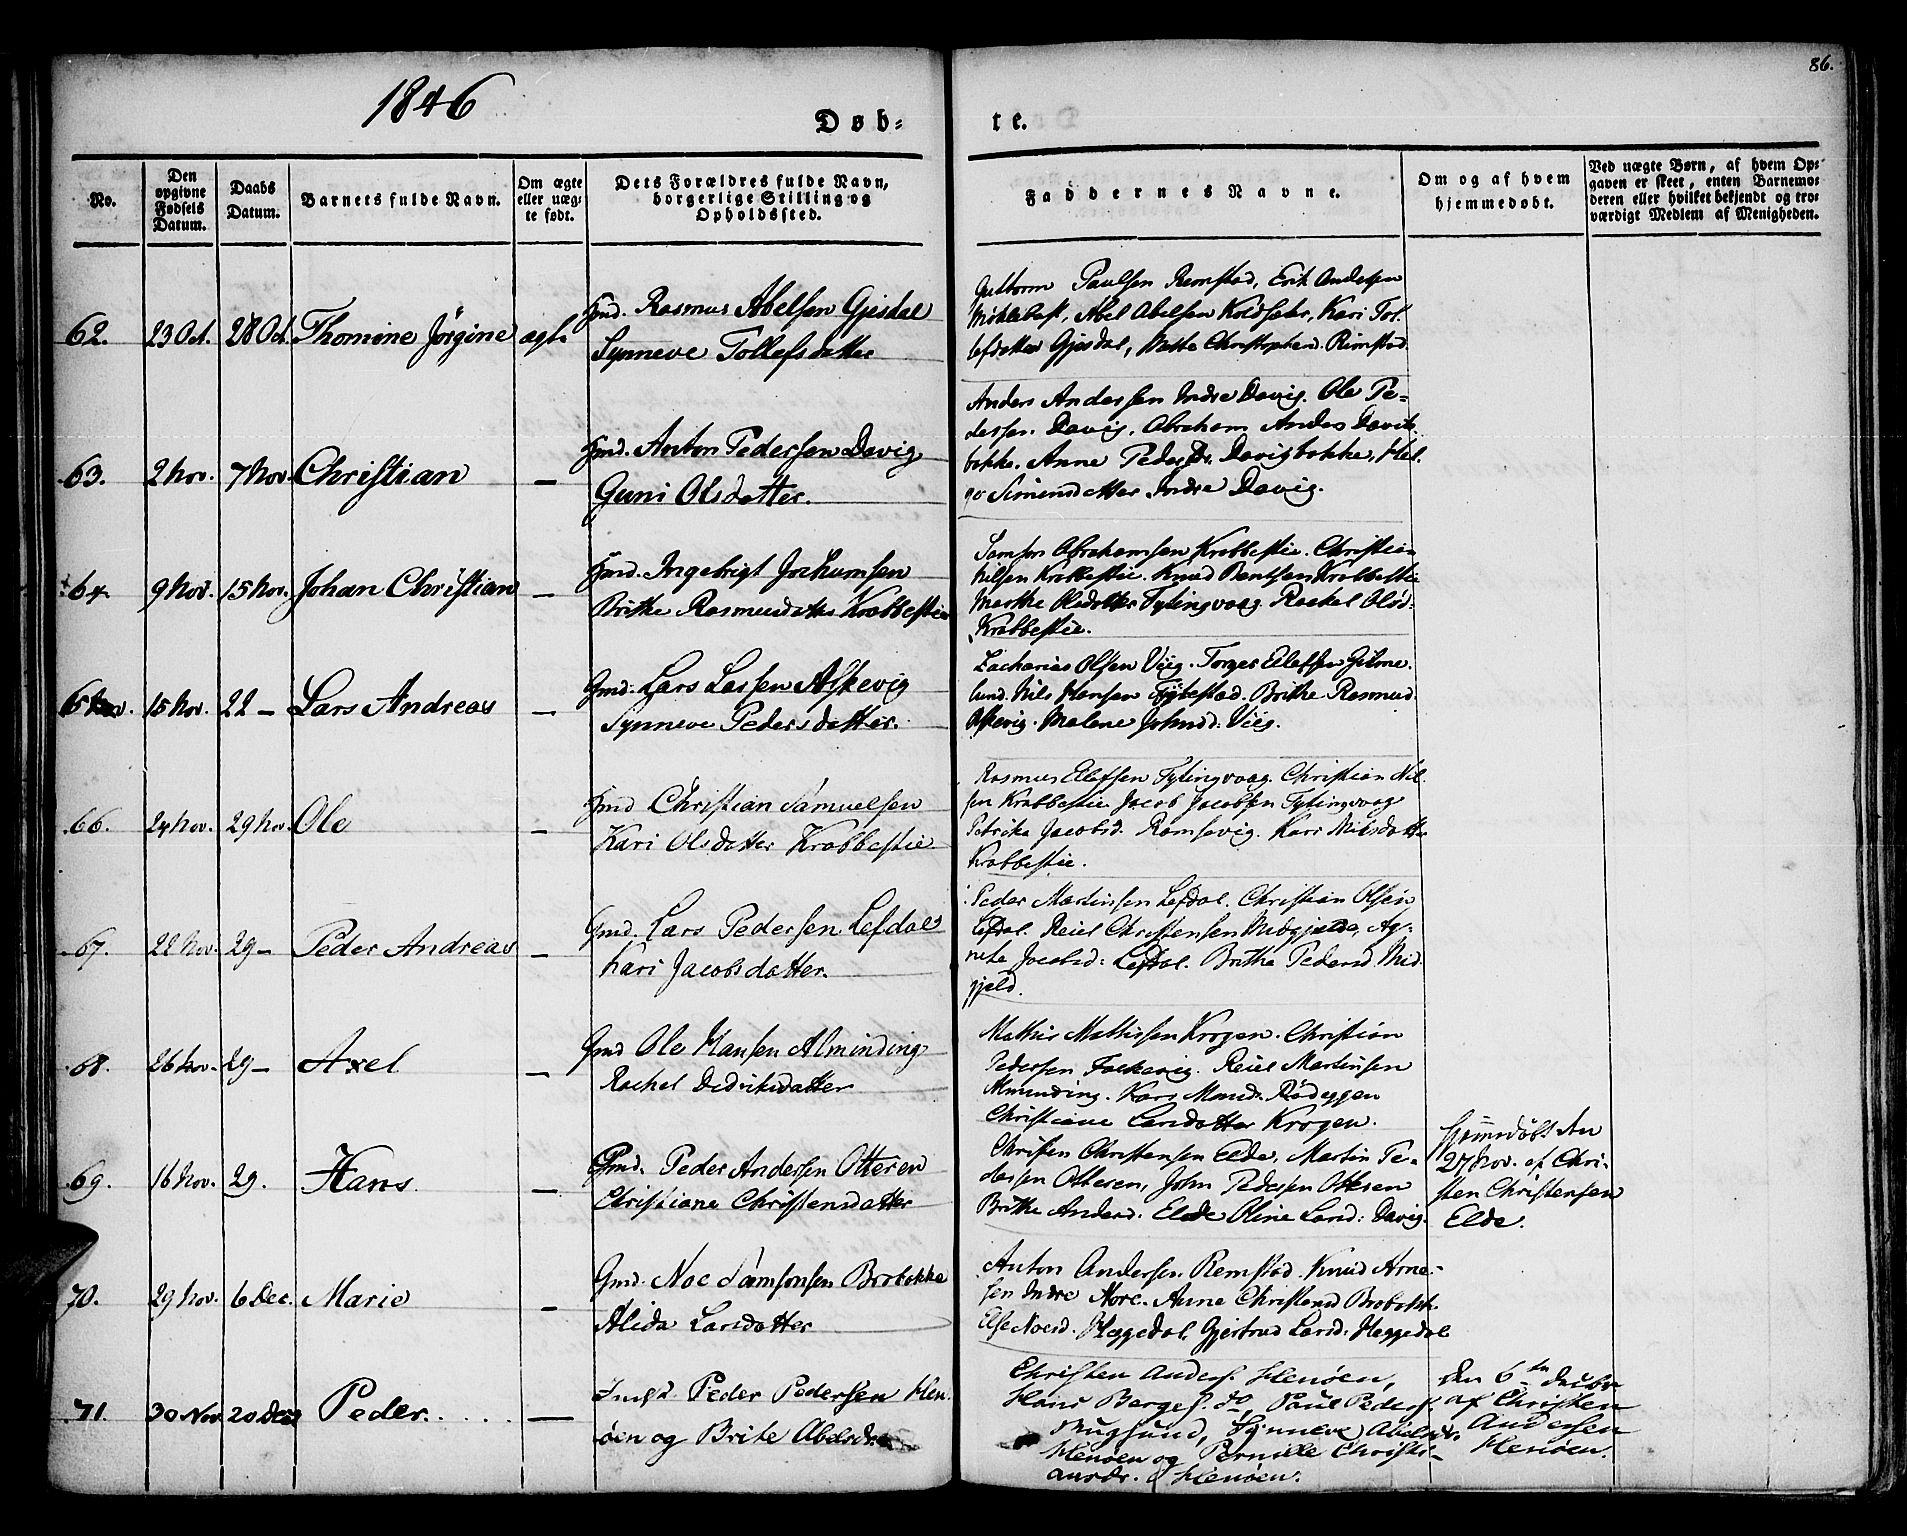 86.
1846
Døb-
te.
No.
Den opgivne Fødsels Datum.
Daabs Datum.
Barnets fulde Navn.
Om ægte eller uæg-te født.
Dets Forældres fulde Navn, borgerlige Stilling og Opholdssted.
Faddernes Navne.
Om og af hvem hjemmedøbt.
Ved uægte Børn, af hvem Op-gaven er skeet, enten Barnemo-deren eller hvilket bekjendt og tro-værdigt Medlem af Menigheden.
62. 23 Oct. 28 Oct. Thomine Jörgine ægte
Gmd. Rasmus Abelsen Gjesdal
Synneve Tollefsdatter
Guttorm Paulsen Remstad, Erik Andersen
Mÿklebust, Abel Abelsen Koldsehr, Kari Tol-
lefdatter Gjesdal, Mette Christophersd. Rimstad.
63. 2 Nov. 7 Nov. Christian —
Gmd. Anton Pedersen Davig
Guni Olsdatter.
Anders Andersen Indre Davig. Ole Pe-
dersen Davig. Abraham Anders. Davik-
bakke. Anne Pedersdr. Davigbakke, Hel-
ge Simensdatter Indre Davig.
64. 9 Nov. 15 Nov. Johan Christian —
Gmd. Ingebrigt Jochumsen
Brithe Rasmusdatter Krabbestie
Samson Abrahamsen Krabbestie. Christian
Nilsen Krabbestie. Knud Bentsen Krabbestie
Marthe Olsdatter Fytingvaag. Rackel Olsd.
Krabbestie.
65. 15 Nov. 22 — Lars Andreas —
Gmd. Lars Larsen Askevig
Synneve Pedersdatter.
Zacharias Olsen Viig. Torger Ellefsen Gilme-
lund. Nils Hansen Frÿbestad. Brithe Rasmusd.
Askevig. Malene Johnsd: Viig.
66. 24 Nov. 29 Nov. Ole —
Gmd Christian Samuelsen
Kari Olsdatter Krabbestie
Rasmus Ellefsen Fytingvaag. Christian Nil-
sen Krabbestie Jacob Jacobsen Fytingvaag
Petrika Jacobsd. Ramsevig. Kari Nilsdatter
Krabbestie.
67. 22 Nov. 29 — Peder Andreas —
Gmd. Lars Pedersen Lefdal
Kari Jacobsdatter.
Peder Martinsen Lefdal. Christian Olsen
Lefdal. Reiel Christensen Midgjelde, Ag-
nete Jacobsd: Lefdal. Brithe Pedersd. Mid-
gjeld.
68. 26 Nov. 29 — Axel —
Gmd Ole Hansen Alminding
Rachel Didriksdatter
Mathis Mathissen Krogen. Christian
Pedersen Falkevig. Reiel Martinsen
Alminding. Kari Monsd. Rödeggen
Christiane Larsdatter Krogen.
69. 16 Nov. 29. Hans —
Gmd. Peder Andersen Otteren
Christiane Christensdatter
Christen Christensen Elde, Martin Pe-
dersen Otteren, John Pedersen Otteren
Brithe Andersd. Elde Oline Larsd: Davig.
Hjemdöbt den
27 Nov. af Chri-
sten Christensen
Elde.
70. 29 Nov. 6 Dec. Marie —
Gmd. Noe Samsonsen Brobakke
Alida Larsdatter
Anton Andersen Remstad. Knud Arne-
sen Indre Hore. Anne Christensd Brobakk.
Else Noesd. Heggedal. Gjertrud Larsd: Heggedal
71. 30 Nov. 20 Dec. Peder. —
Indst. Peder Pedersen Hen-
øen og Brite Abelsdr.
Christen Anders. Henøen,
Hans Berge S. do, Paul Peders.
Rugsund, Synneve Abelsdr.
Henøen og Pernille Christi-
ansdr. Henøen.
Den 6te Decbr
af Christen
Andersen
Henøen.